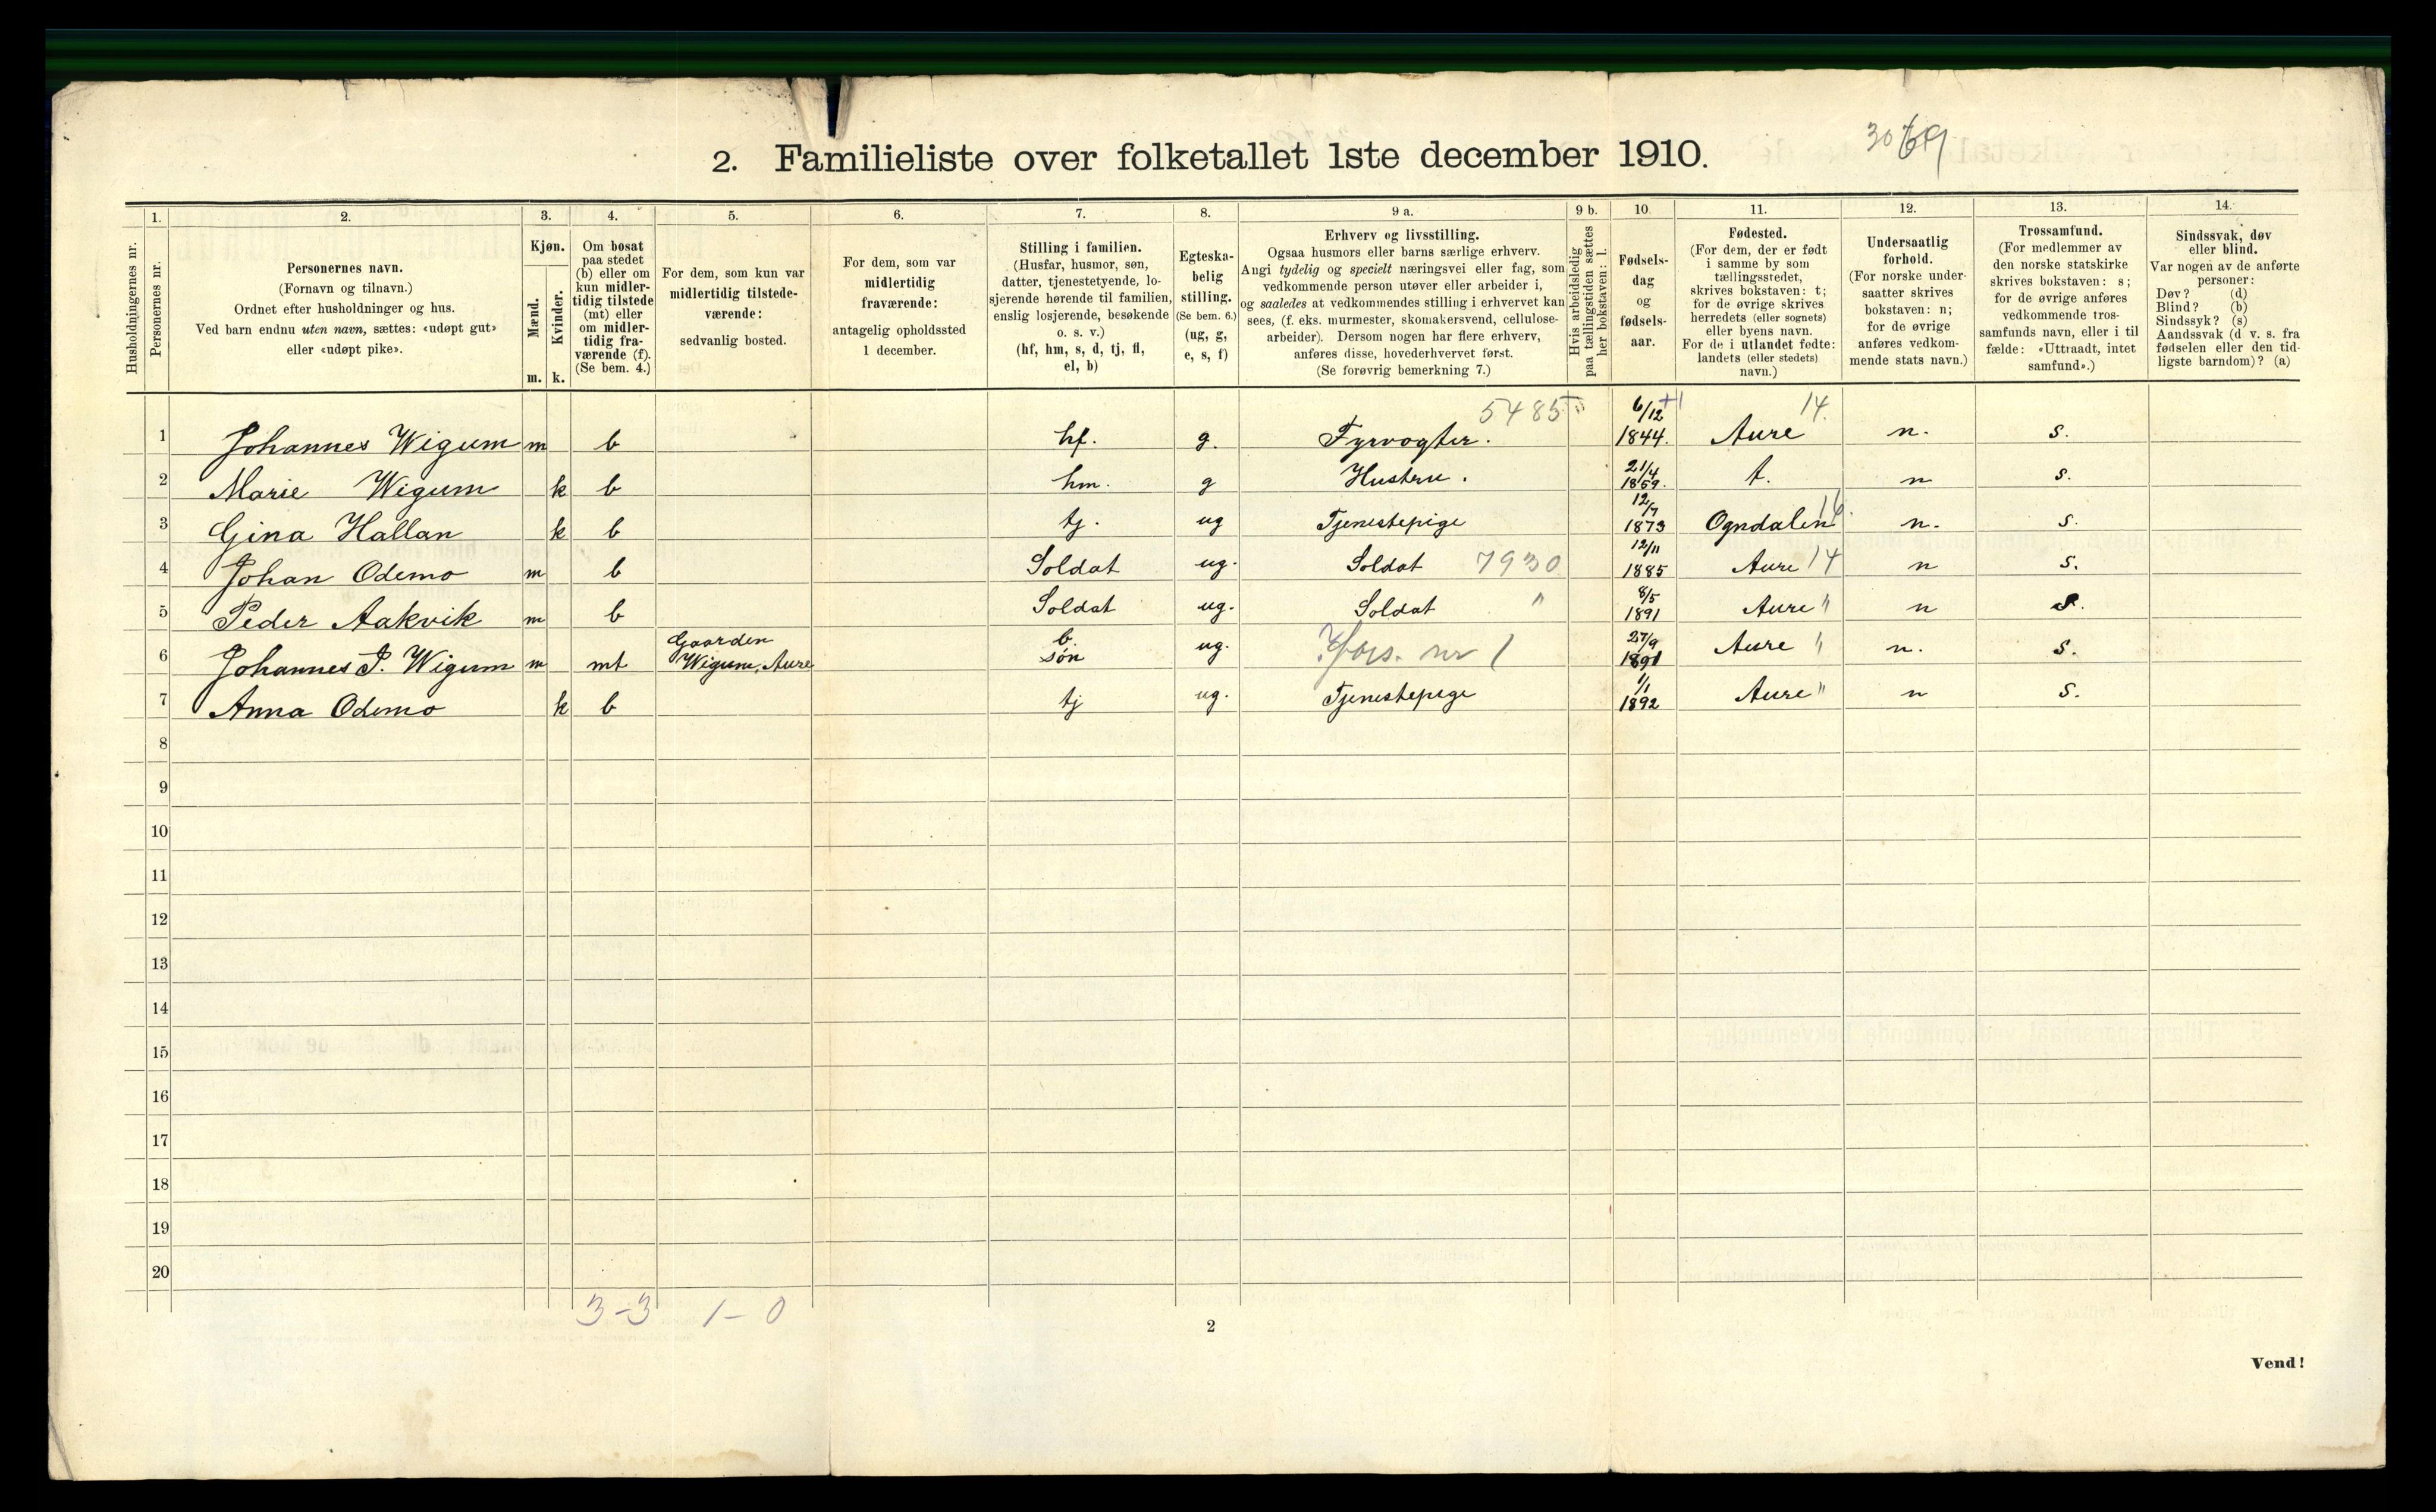 3069
2. Familieliste over folketallet 1ste december 1910.
1. 2. 3. 4. 5. 6. 7. 8. 9 a. 9 b. 10. 11. 12. 13. 14.
Husholdningernes nr.
Personernes nr.
Personernes navn.
(Fornavn og tilnavn.)
Ordnet efter husholdninger og hus.
Ved barn endnu uten navn, sættes: «udøpt gut»
eller «udøpt pike».
Kjøn.
Mænd.
Kvinder.
m. k.
Om bosat
paa stedet
(b) eller om
kun midler-
tidig tilstede
(mt) eller
om midler-
tidig fra-
værende (f).
(Se bem. 4.)
For dem, som kun var
midlertidig tilstede-
værende:
sedvanlig bosted.
For dem, som var
midlertidig
fraværende:
antagelig opholdssted
1 december.
Stilling i familien.
(Husfar, husmor, søn,
datter, tjenestetyende, lo-
sjerende hørende til familien,
enslig losjerende, besøkende
o. s. v.)
(hf, hm, s, d, tj, fl,
el, b)
Egteska-
belig
stilling.
(Se bem. 6.)
(ug, g,
e, s, f)
Erhverv og livsstilling.
Ogsaa husmors eller barns særlige erhverv.
Angi tydelig og specielt næringsvei eller fag, som
vedkommende person utøver eller arbeider i,
og saaledes at vedkommendes stilling i erhvervet kan
sees, (f. eks. murmester, skomakersvend, cellulose-
arbeider). Dersom nogen har flere erhverv,
anføres disse, hovederhvervet først.
(Se forøvrig bemerkning 7.)
Hvis arbeidsledig
paa tællingstiden sættes
her bokstaven: l.
Fødsels-
dag
og
fødsels-
aar.
Fødested.
(For dem, der er født
i samme by som
tællingsstedet,
skrives bokstaven: t;
for de øvrige skrives
herredets (eller sognets)
eller byens navn.
For de i utlandet fødte:
landets (eller stedets)
navn.)
Undersaatlig
forhold.
(For norske under-
saatter skrives
bokstaven: n;
for de øvrige
anføres vedkom-
mende stats navn.)
Trossamfund.
(For medlemmer av
den norske statskirke
skrives bokstaven: s;
for de øvrige anføres
vedkommende tros-
samfunds navn, eller i til
fælde: «Uttraadt, intet
samfund».)
Sindssvak, døv
eller blind.
Var nogen av de anførte
personer:
Døv? (d)
Blind? (b)
Sindssyk? (s)
Aandssvak (d v. s. fra
fødselen eller den tid-
ligste barndom)? (a)
5485 6/12 14.
1 Johannes Wigum m b hf. g. Fyrvogter. 1844. Aure n. s.
21/4
2 Marie Wigum k b hm. g Hustru. 1859. t. n s.
12/7
3 Gina Hallan k b tj. ug Tjenestepige 1873 Ogndalen 16. n. s.
12/11
4 Johan Odemo m b Soldat ug. Soldat 7930 1885 Aure 14 n s.
8/5
5 Peder Aakvik m b Soldat ug. Soldat " 1891 Aure " n s.
Gaarden b. 27/9
6 Johannes P. Wigum m mt Wigum, Aure søn ug. Fors. nr 1 1891 Aure " n. s.
1/1
7 Anna Odemo k b tj ug. Tjenestepige 1892 Aure " n s.
8
9
10
11
12
13
14
15
16
17
18
19
20
3-3 1-0
2
Vend!